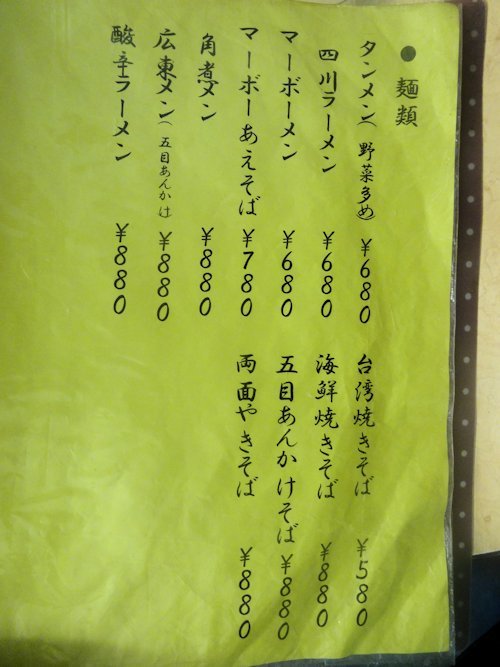 ●麺類
タンメン(野菜多め) ¥680
四川ラーメン ¥680
マーボーメン ¥680
マーボーあえそば ¥780
角煮メン ¥880
広東メン(五目あんかけ) ¥880
酸辛ラーメン ¥880
台湾焼きそば ¥580
海鮮焼きそば ¥880
五目あんかけそば ¥880
両面やきそば ¥880